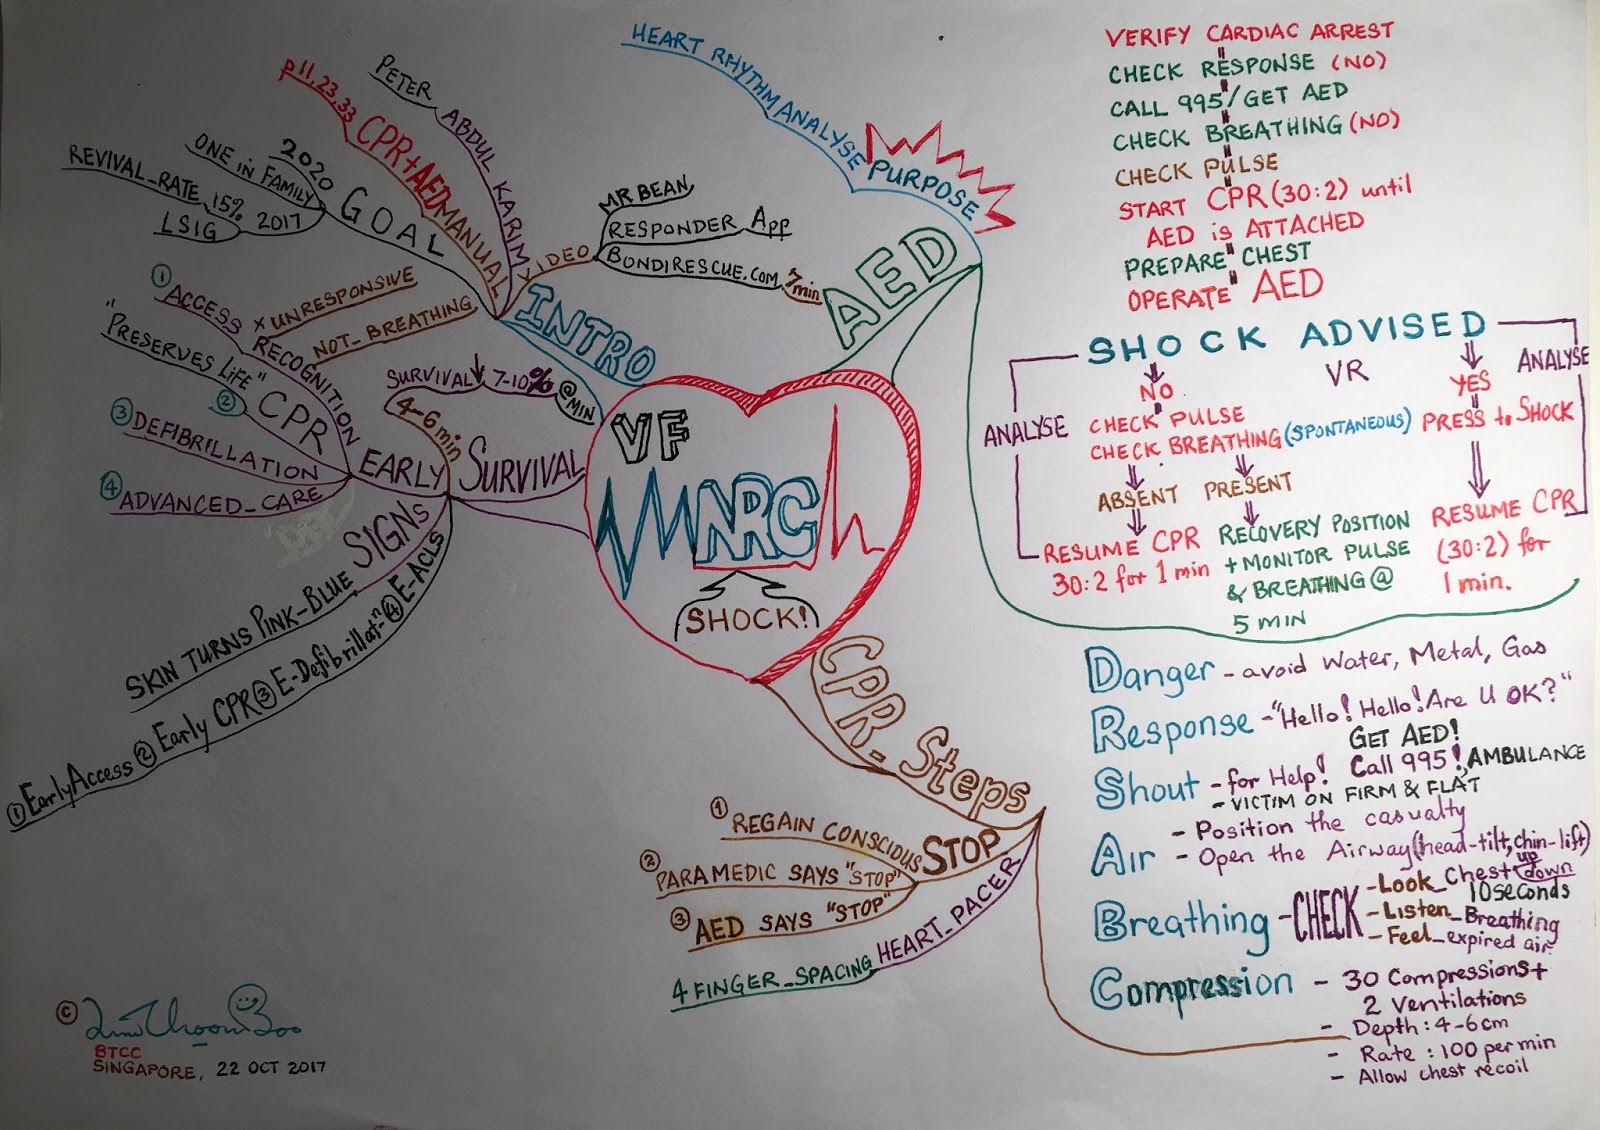 VF
NRC
SHOCK!
INTRO
GOAL
2020
ONE in FAMILY
REVIVAL_RATE 15% 2017
LSIG
CPR+AED MANUAL
p11,23,33
PETER ABDUL KARIM
VIDEO
MR BEAN
RESPONDER App
BONDIRESCUE.COM 7min
AED
PURPOSE
HEART RHYTHM ANALYSE
VERIFY CARDIAC ARREST
CHECK RESPONSE (NO)
CALL 995/GET AED
CHECK BREATHING (NO)
CHECK PULSE
START CPR (30:2) until
AED is ATTACHED
PREPARE CHEST
OPERATE AED
SHOCK ADVISED
VR
ANALYSE
NO
CHECK PULSE
CHECK BREATHING (SPONTANEOUS)
ABSENT
RESUME CPR
30:2 for 1 min
PRESENT
RECOVERY POSITION
+ MONITOR PULSE
& BREATHING @
5 MIN
YES
ANALYSE
PRESS to SHOCK
RESUME CPR
(30:2) for
1 min.
SURVIVAL
SURVIVAL 7-10% @MIN
EARLY
4-6 min
① ACCESS RECOGNITION
x UNRESPONSIVE
NOT_BREATHING
② CPR
"PRESERVES LiFE"
③ DEFIBRILLATION
④ ADVANCED_CARE
SIGNs
SKIN TURNS PINK-BLUE
① Early Access ② Early CPR ③ E-Defibrillat- ④ E-ACLS
CPR_Steps
STOP
① REGAIN CONSCIOUS
② PARAMEDIC SAYS "STOP"
③ AED SAYS "STOP"
HEART_PACER
4 FINGER_SPACING
Danger - avoid Water, Metal, Gas
Response - "Hello! Hello! Are U OK?"
GET AED!
Shout - for Help! Call 995!, AMBULANCE
- VICTIM ON FIRM & FLAT
Air - Position the casualty
- Open the Airway (head-tilt, chin-lift)
Breathing - CHECK
- Look_Chest up down
10 seconds
- Listen_Breathing
- Feel_expired air
Compression - 30 Compressions +
2 Ventilations
- Depth: 4-6cm
- Rate : 100 per min
- Allow chest recoil
©
BTCC
SINGAPORE, 22 OCT 2017